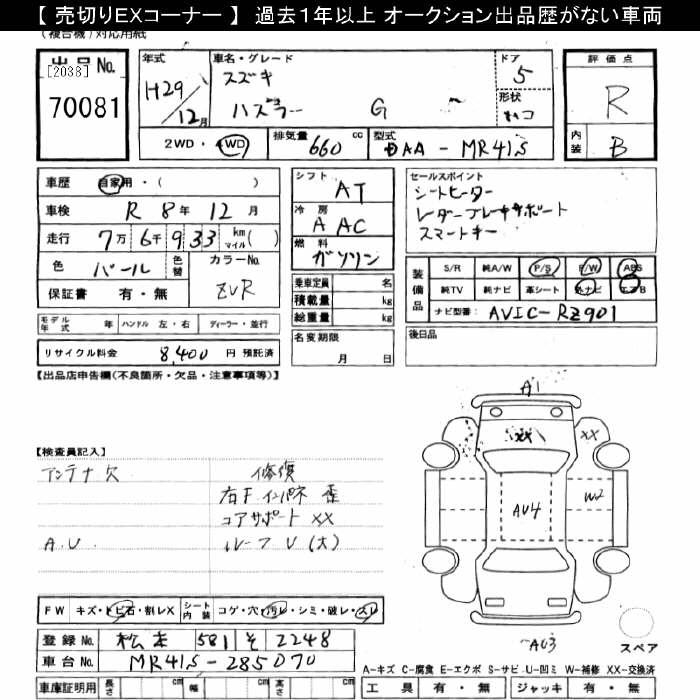 【 売切りEXコーナー 】 過去1年以上 オークション出品歴がない車両
(複合機)対応用紙
出品No.
[2038]
70081
年式
H29/12月
車名・グレード
スズキ
ハスラー G
ドア
5
形状
ハコ
評価点
R
内装
B
2WD・4WD
排気量 660 cc
型式 DAA - MR41S
車歴 自家用・( )
車検 R 8年 12月
走行 7万6千9 33 km マイル( )
色 パール
色替
カラーNo. ZVR
保証書 有・無
モデル年式 年 ハンドル 左・右 ディーラー・並行
リサイクル料金 8,400 円 預託済
シフト AT
冷房 AAC
燃料 ガソリン
乗車定員 名
積載量 kg
総重量 kg
名変期限
月 日
セールスポイント
シートヒーター
レーダーブレーキサポート
スマートキー
装備品
S/R 純A/W P/S P/W ABS
純TV 純ナビ 革シート 社ナビ エアB
ナビ型番: AVIC-RZ901
後日品
【出品店申告欄(不良箇所・欠品・注意事項等)】
【検査員記入】
アンテナ欠
修復
右Fインパネ 歪
コアサポート XX
A.U
ルーフU(大)
A1
XX
XX
W2
AU4
AU3
スペア
FW キズ・トビ石・割レX
シート内装 コゲ・穴・汚レ・シミ・破レ・スレ
登録No. 松本 581 そ 2248
車台No. MR41S-285070
車庫証明用 長さ cm 幅 cm 高さ cm
A-キズ C-腐食 E-エクボ S-サビ U-凹ミ W-補修 XX-交換済
工具 有・無 ジャッキ 有・無